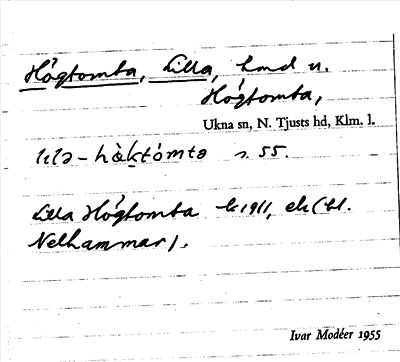 Högtomta, Lilla, hmd u.
Högtomta,
Ukna sn, N. Tjusts hd, Klm. l.
lılə-hὰktómtə s. 55.
Lilla Högtomta k 1911, ek (bl.
Nelhammar).
Ivar Modéer 1955